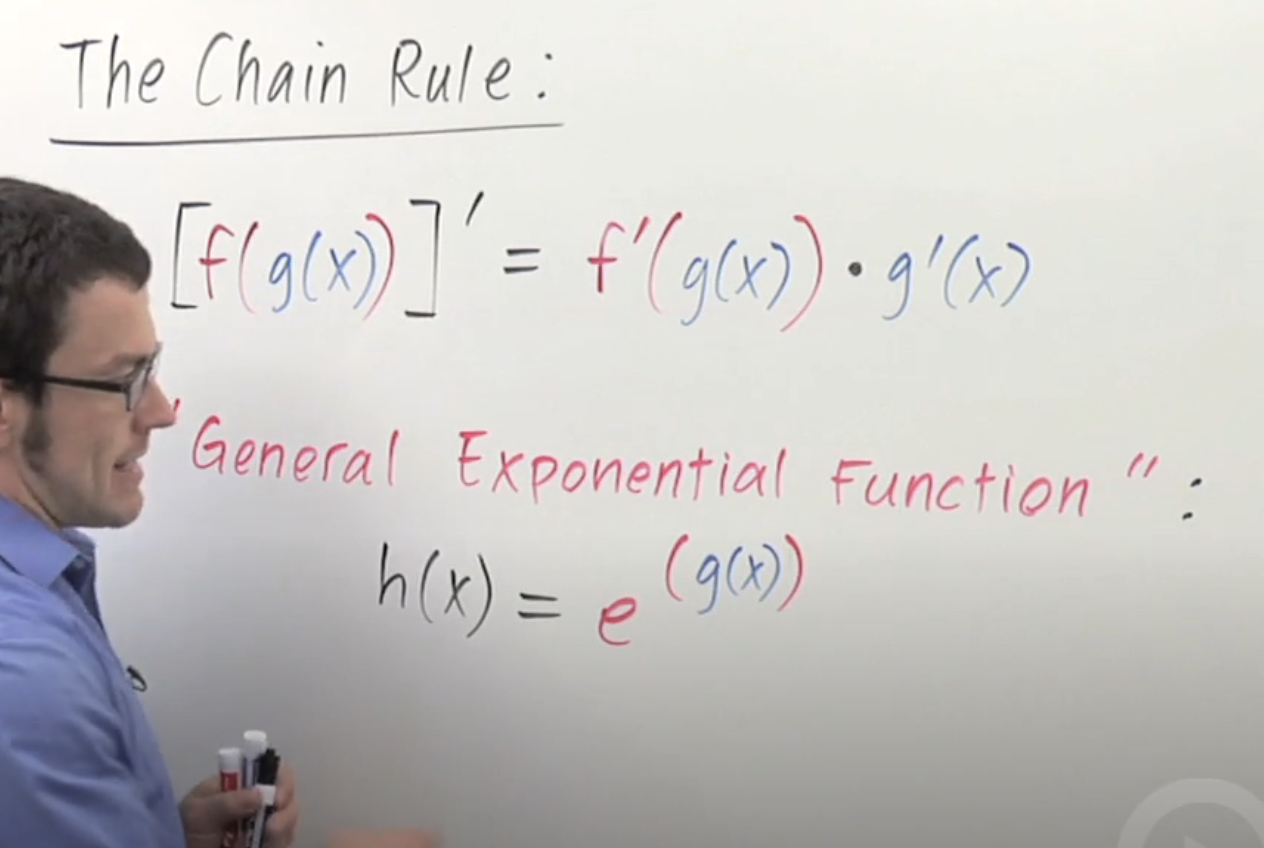 The Chain Rule:
[f(g(x))]' = f'(g(x)) · g'(x)
"General Exponential Function":
h(x) = e^(g(x))